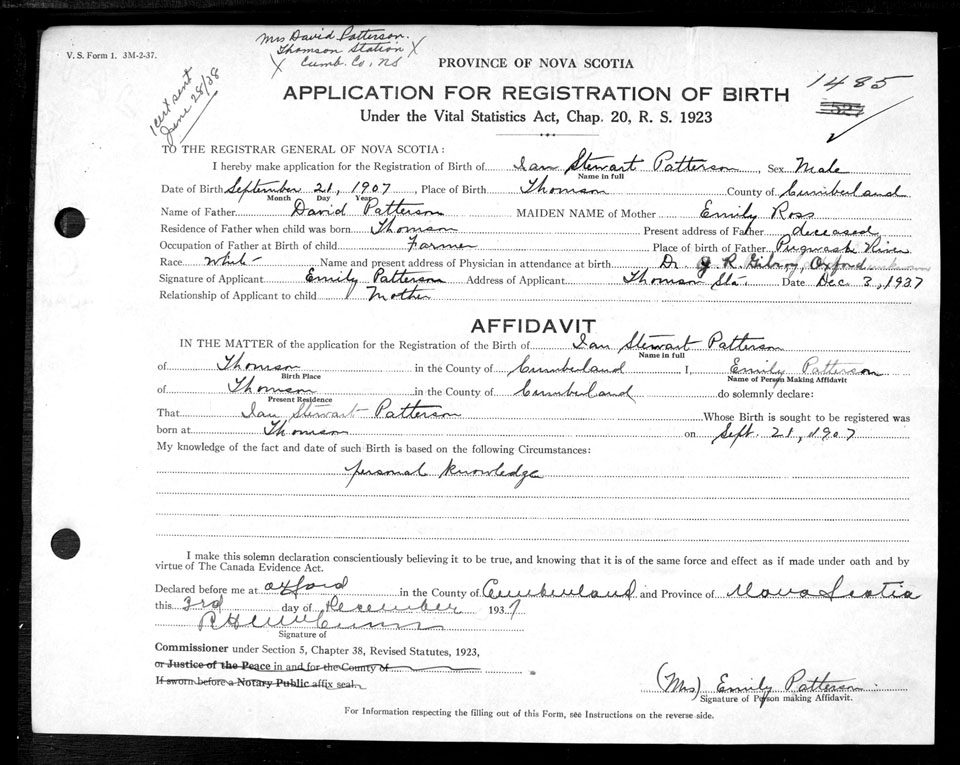 V. S. Form 1. 3M-2-37.
Mrs David Patterson.
Thomson Station X
X Cumb. Co, NS
1 cert sent
June 28/38
PROVINCE OF NOVA SCOTIA
1485
527
APPLICATION FOR REGISTRATION OF BIRTH
Under the Vital Statistics Act, Chap. 20, R. S. 1923
TO THE REGISTRAR GENERAL OF NOVA SCOTIA:
I hereby make application for the Registration of Birth of Ian Stewart Patterson Sex Male
Name in full
Date of Birth September 21, 1907, Place of Birth Thomson County of Cumberland
Month Day Year
Name of Father David Patterson MAIDEN NAME of Mother Emily Ross
Residence of Father when child was born Thomson Present address of Father deceased
Occupation of Father at Birth of child Farmer Place of birth of Father Pugwash River
Race White Name and present address of Physician in attendance at birth Dr J R Gilroy, Oxford
Signature of Applicant Emily Patterson Address of Applicant Thomson Sta. Date Dec 3, 1937
Relationship of Applicant to child Mother
AFFIDAVIT
IN THE MATTER of the application for the Registration of the Birth of Ian Stewart Patterson
Name in full
of Thomson in the County of Cumberland I, Emily Patterson
Birth Place Name of Person Making Affidavit
of Thomson in the County of Cumberland do solemnly declare:
Present Residence
That Ian Stewart Patterson Whose Birth is sought to be registered was
born at Thomson on Sept. 21, 1907
My knowledge of the fact and date of such Birth is based on the following Circumstances:
personal knowledge
I make this solemn declaration conscientiously believing it to be true, and knowing that it is of the same force and effect as if made under oath and by
virtue of The Canada Evidence Act.
Declared before me at Oxford in the County of Cumberland and Province of Nova Scotia
this 3rd day of December 1937
Signature of
Commissioner under Section 5, Chapter 38, Revised Statutes, 1923,
or Justice of the Peace in and for the County of
If sworn before a Notary Public affix seal.
(Mrs) Emily Patterson
Signature of Person making Affidavit.
For Information respecting the filling out of this Form, see Instructions on the reverse side.